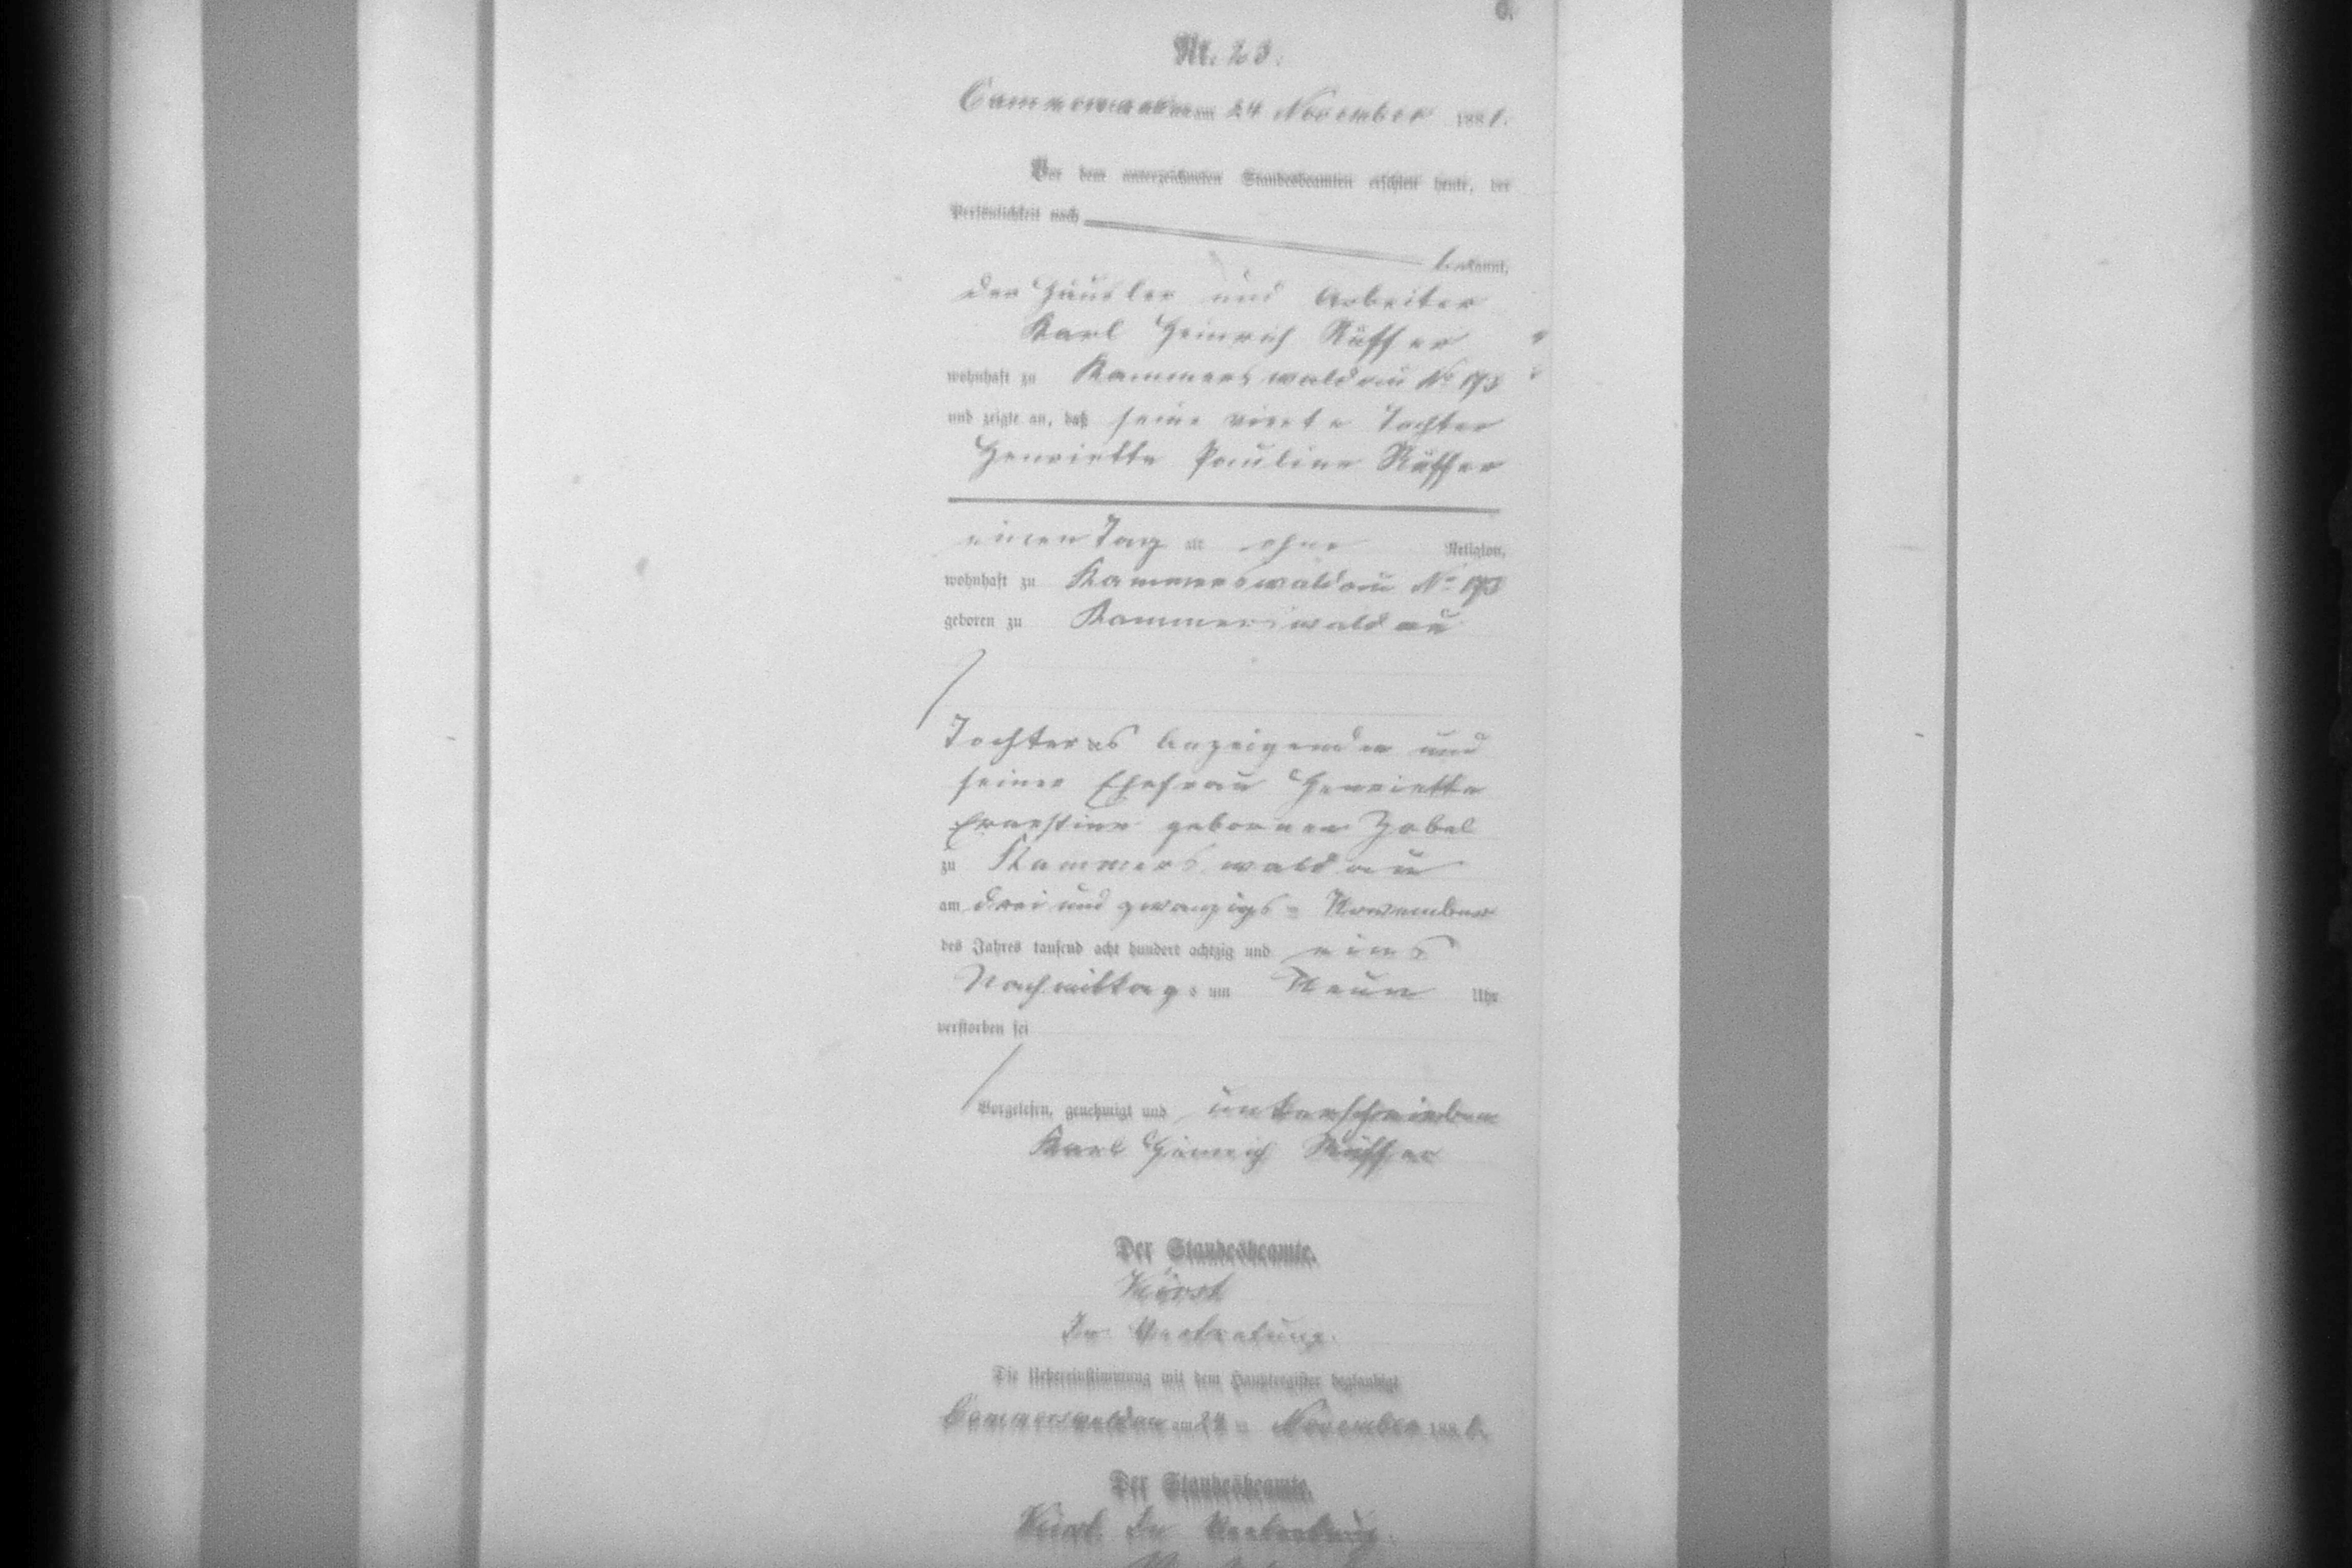 C.
Nr. 23.
Cammerswaldau am 24 November 1881.
Vor dem unterzeichneten Standesbeamten erschien heute, der
Persönlichkeit nach
bekannt,
der Häusler und Arbeiter
Karl Heinrich Rüffer
wohnhaft zu Kammerswaldau No 173
und zeigte an, daß seine vierte Tochter
Henriette Pauline Rüffer
einen Tag alt ohne Religion,
wohnhaft zu Kammerswaldau No 173
geboren zu Kammerswaldau
Tochter des Anzeigenden und
seiner Ehefrau Henriette
Ernestine gebornen Zobel
zu Kammerswaldau
am drei und zwanzigsten November
des Jahres tausend acht hundert achtzig und eins
Nachmittags um Neun Uhr
verstorben sei
Vorgelesen, genehmigt und unterschrieben
Karl Heinrich Rüffer
Der Standesbeamte.
In Vertretung.
Die Uebereinstimmung mit dem Hauptregister beglaubigt
Cammerswaldau am 24 ten November 1881.
Der Standesbeamte.
In Vertretung.